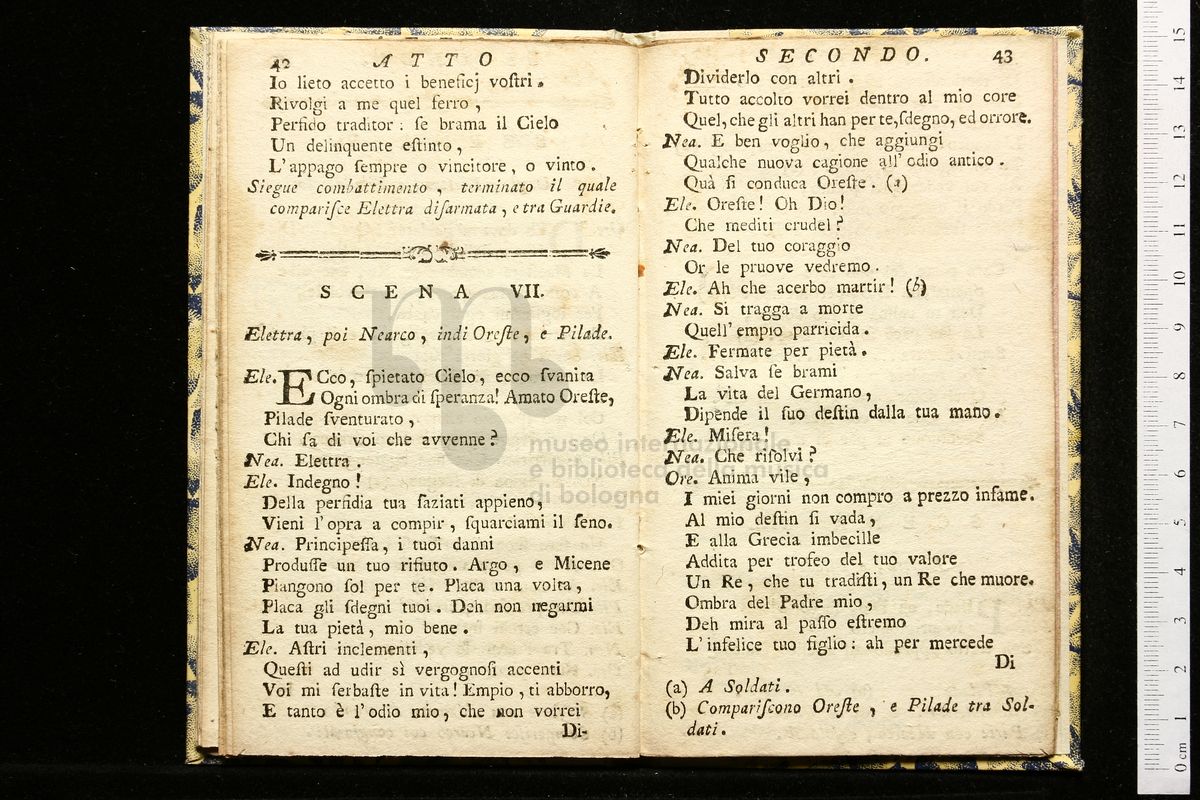 42 ATTO
Io lieto accetto i beneficj voſtri.
Rivolgi a me quel ferro,
Perfido traditor: ſe brama il Cielo
Un delinquente eſtinto,
L'appago ſempre o vincitore, o vinto.
Siegue combattimento, terminato il quale
compariſce Elettra diſarmata, e tra Guardie.
SCENA VII.
Elettra, poi Nearco, indi Oreſte, e Pilade.
Ele. ECco, ſpietato Cielo, ecco ſvanita
Ogni ombra di ſperanza! Amato Oreſte,
Pilade ſventurato,
Chi ſa di voi che avvenne?
Nea. Elettra.
Ele. Indegno!
Della perfidia tua ſaziati appieno,
Vieni l'opra a compir, ſquarciami il ſeno.
Nea. Principeſſa, i tuoi danni
Produſſe un tuo rifiuto. Argo, e Micene
Piangono ſol per te. Placa una volta,
Placa gli ſdegni tuoi. Deh non negarmi
La tua pietà, mio bene.
Ele. Aſtri inclementi,
Queſti ad udir sì vergognoſi accenti
Voi mi ſerbaſte in vita! Empio, ti abborro,
E tanto è l'odio mio, che non vorrei
Di-
SECONDO. 43
Dividerlo con altri.
Tutto accolto vorrei dentro al mio core
Quel, che gli altri han per te, ſdegno, ed orrore.
Nea. E ben voglio, che aggiungi
Qualche nuova cagione all'odio antico.
Quà ſi conduca Oreſte. (a)
Ele. Oreſte! Oh Dio!
Che mediti crudel?
Nea. Del tuo coraggio
Or le pruove vedremo.
Ele. Ah che acerbo martir! (b)
Nea. Si tragga a morte
Quell'empio parricida.
Ele. Fermate per pietà.
Nea. Salva ſe brami
La vita del Germano,
Dipende il ſuo deſtin dalla tua mano.
Ele. Miſera!
Nea. Che riſolvi?
Ore. Anima vile,
I miei giorni non compro a prezzo infame.
Al mio deſtin ſi vada,
E alla Grecia imbecille
Addita per trofeo del tuo valore
Un Re, che tu tradiſti, un Re che muore.
Ombra del Padre mio,
Deh mira al paſſo eſtremo
L'infelice tuo figlio: ah per mercede
Di
(a) A Soldati.
(b) Compariſcono Oreſte, e Pilade tra Sol-
dati.
museo internazionale
e biblioteca della musica
di bologna
0 cm 1 2 3 4 5 6 7 8 9 10 11 12 13 14 15